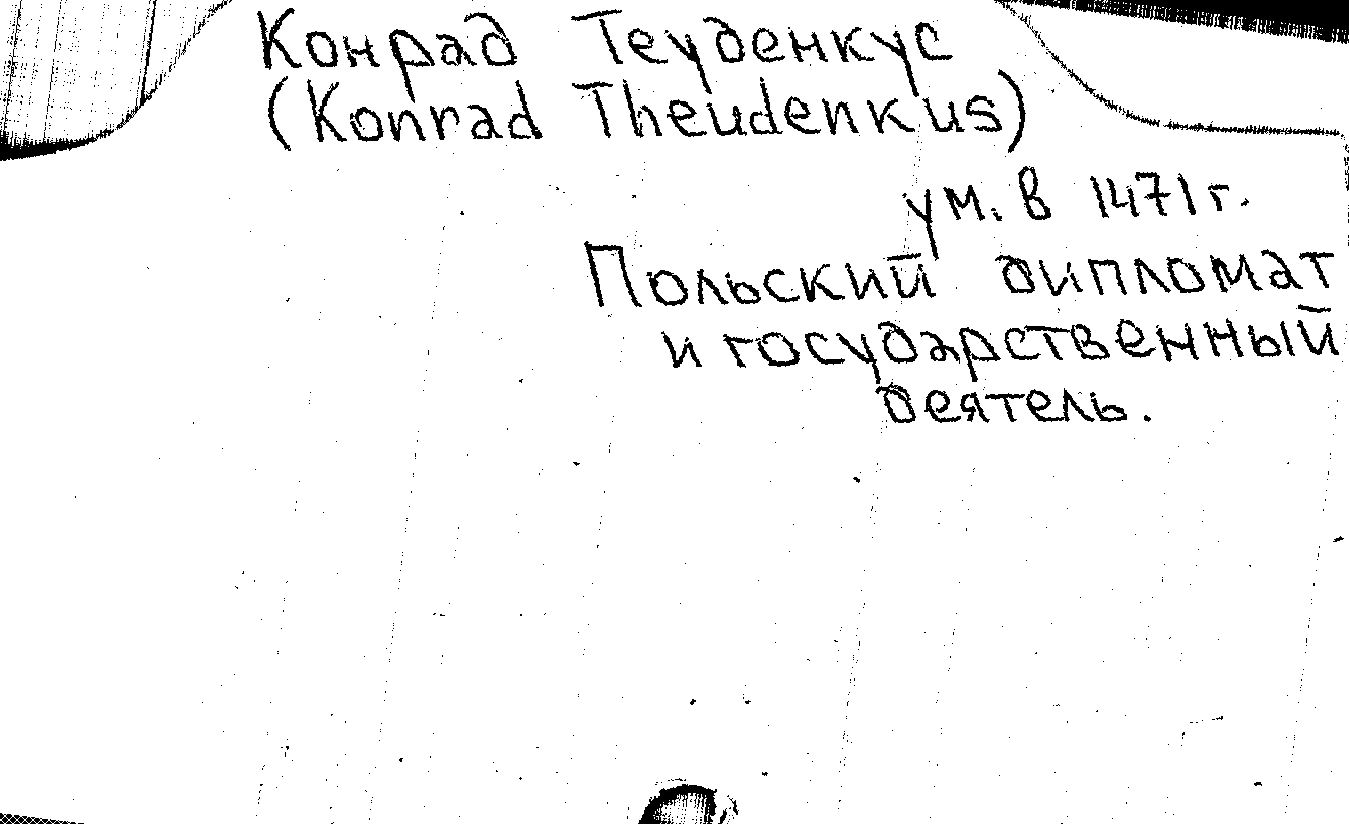 Конрад Теуденкус
(Konrad Theudenkus)
ум. в 1471 г.
Польский дипломат
и государственный
деятель.